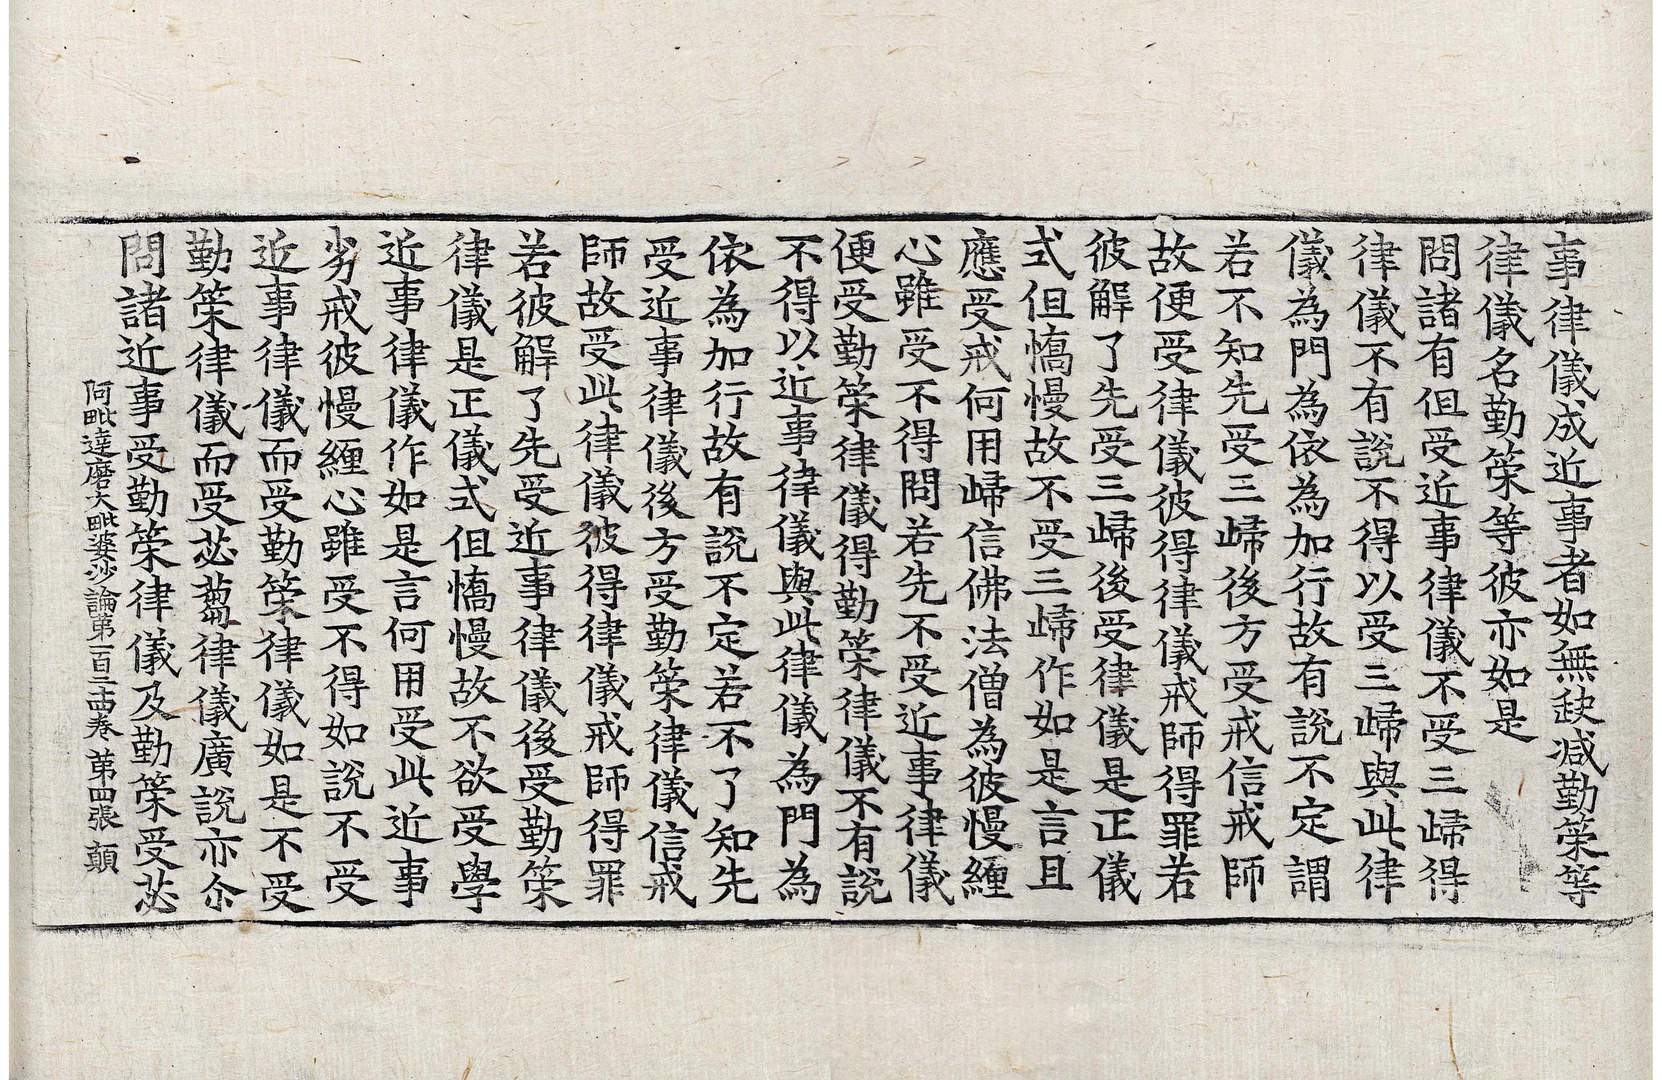 事律儀成近事者如無缺減勤策等
律儀名勤策等彼亦如是
問諸有但受近事律儀不受三歸得
律儀不有說不得以受三歸與此律
儀為門為依為加行故有說不定謂
若不知先受三歸後方受戒信戒師
故便受律儀彼得律儀戒師得罪若
彼解了先受三歸後受律儀是正儀
式但憍慢故不受三歸作如是言且
應受戒何用歸信佛法僧為彼慢纏
心雖受不得問若先不受近事律儀
便受勤策律儀得勤策律儀不有說
不得以近事律儀與此律儀為門為
依為加行故有說不定若不了知先
受近事律儀後方受勤策律儀信戒
師故受此律儀彼得律儀戒師得罪
若彼解了先受近事律儀後受勤策
律儀是正儀式但憍慢故不欲受學
近事律儀作如是言何用受此近事
劣戒彼慢纏心雖受不得如說不受
近事律儀而受勤策律儀如是不受
勤策律儀而受苾蒭律儀廣說亦尒
問諸近事受勤策律儀及勤策受苾
阿毗達磨大毗婆沙論第一百二十四卷 第四張 顛